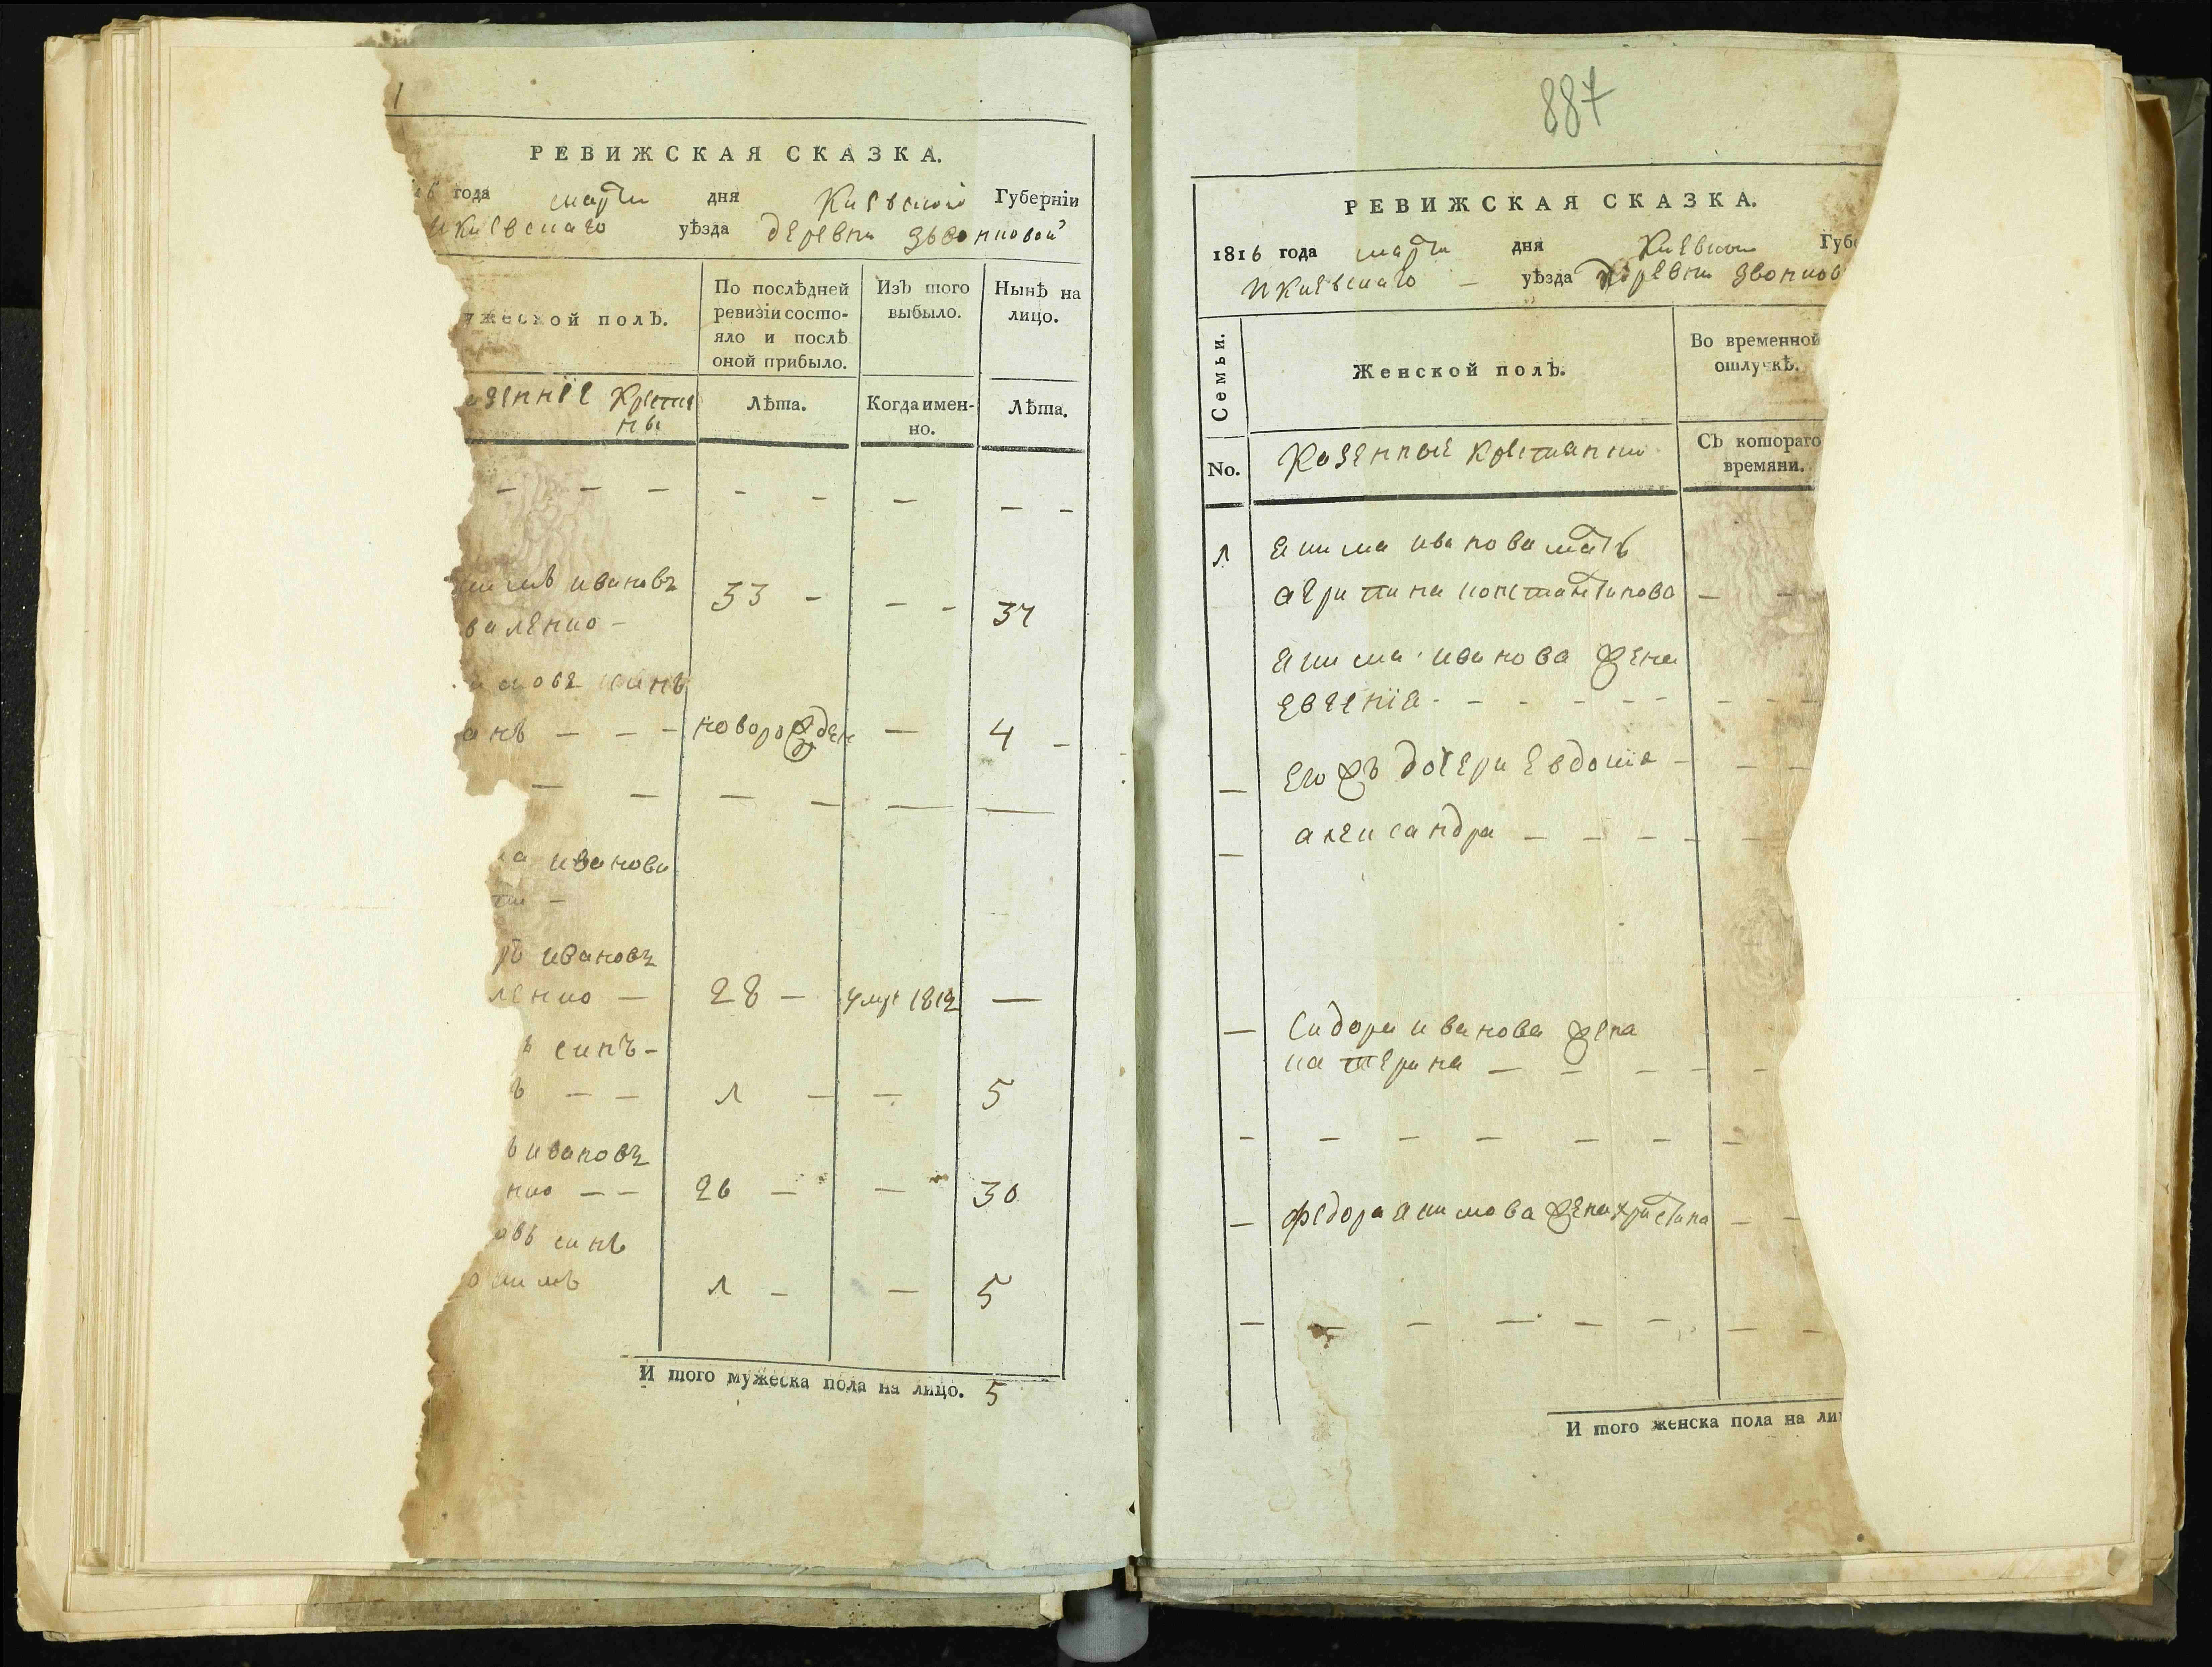 РЕВИЖСКАЯ СКАЗКА.
года марта дня Киевской Губерніи
Икиевскаго уѣзда деревни Звонковой
жеской полъ.
По послѣдней ревизіи состо-
яло и послѣ
оной прибыло.
Изъ того выбыло.
Нынѣ на лицо.
зеннiе Крестия
ны
Лѣта.
Когда имен-
но.
Лѣта.
имъ ивановъ
валенко – 33 – – – 37
синъ
анъ – – – новорожден – 4 –
иванови
ръ ивановъ
ленко – 28 – умре 1812 —
ъ синъ –
ъ – – 1 – – 5
ъ ивановъ
нко – – 26 – – 30
овъ синъ
кимъ 1 – – 5
И того мужеска пола на лицо. 5
887
РЕВИЖСКАЯ СКАЗКА.
1816 года марта дня Киевской Губе
Икиевскаго – уѣзда деревни Звонков
Семьи.
Женской полъ.
Во временной
отлучкѣ.
No.
Казенные крестянки
Съ котораго
времяни.
1 Якима иванова мать
агрипина константинова – –
Якима иванова жена
Евгенія – – – – – – – –
Его жъ дочери Евдокія – – –
александра – – – – –
– Сидора иванова жена
катерина – – – – –
– – – – – – – –
– федора акимова жена христина – –
– – – – – – – –
И того женска пола на ли